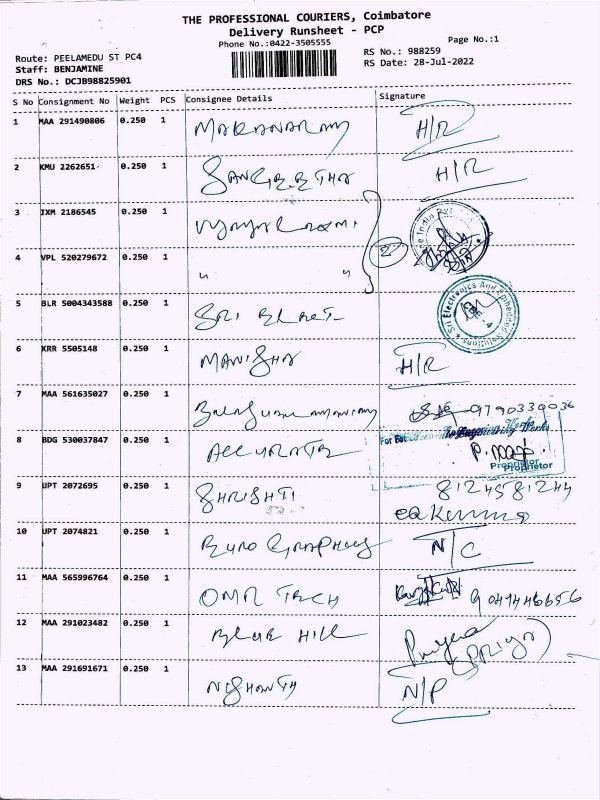 THE PROFESSIONAL COURIERS, Coimbatore
Delivery Runsheet - PCP
Phone No.:0422-3505555
Page No.:1
Route: PEELAMEDU ST PC4
RS No.: 988259
Staff: BENJAMINE
RS Date: 28-Jul-2022
DRS No.: DCJB98825901
S No Consignment No Weight PCS Consignee Details Signature
1 MAA 291490806 0.250 1 H/R
2 KMU 2262651 0.250 1 SANGEETHA H/R
3 IXM 2186545 0.250 1
4 VPL 520279672 0.250 1 " " 2
5 BLR 5004343588 0.250 1 SRI ELECT Sri Electronics And Embedded Solutions
6 KRR 5505148 0.250 1 MANISHA H/R
7 MAA 561635027 0.250 1 Balasubramaniam 9790339036
8 BDG 530037847 0.250 1 ACCURATE For
Proprietor
9 UPT 2072695 0.250 1 SHRISHTI 8124581244
10 UPT 2074821 0.250 1 EURO GRAPHICS N/C
11 MAA 565996764 0.250 1 OMR TECH
12 MAA 291023482 0.250 1 BLUE HILL Priya
(PRIYA)
13 MAA 291691671 0.250 1 NISHANTH N/P